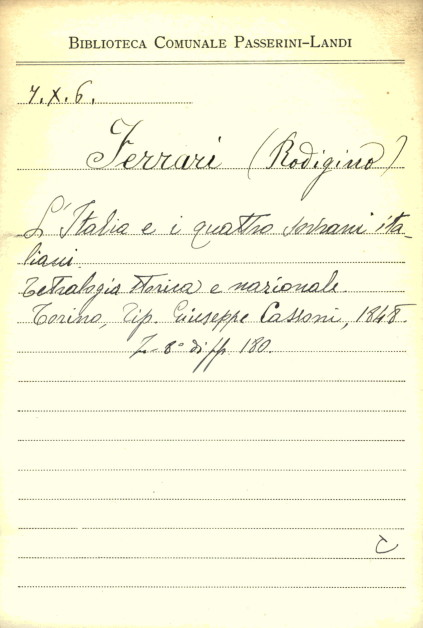 BIBLIOTECA COMUNALE PASSERINI-LANDI
7.X.6.
Ferrari (Rodigino)
L'Italia e i quattro sovrani ita-
liani.
Tetralogia storica e nazionale.
Torino, Tip. Giuseppe Cassoni, 1848.
8° di pp. 180.
C